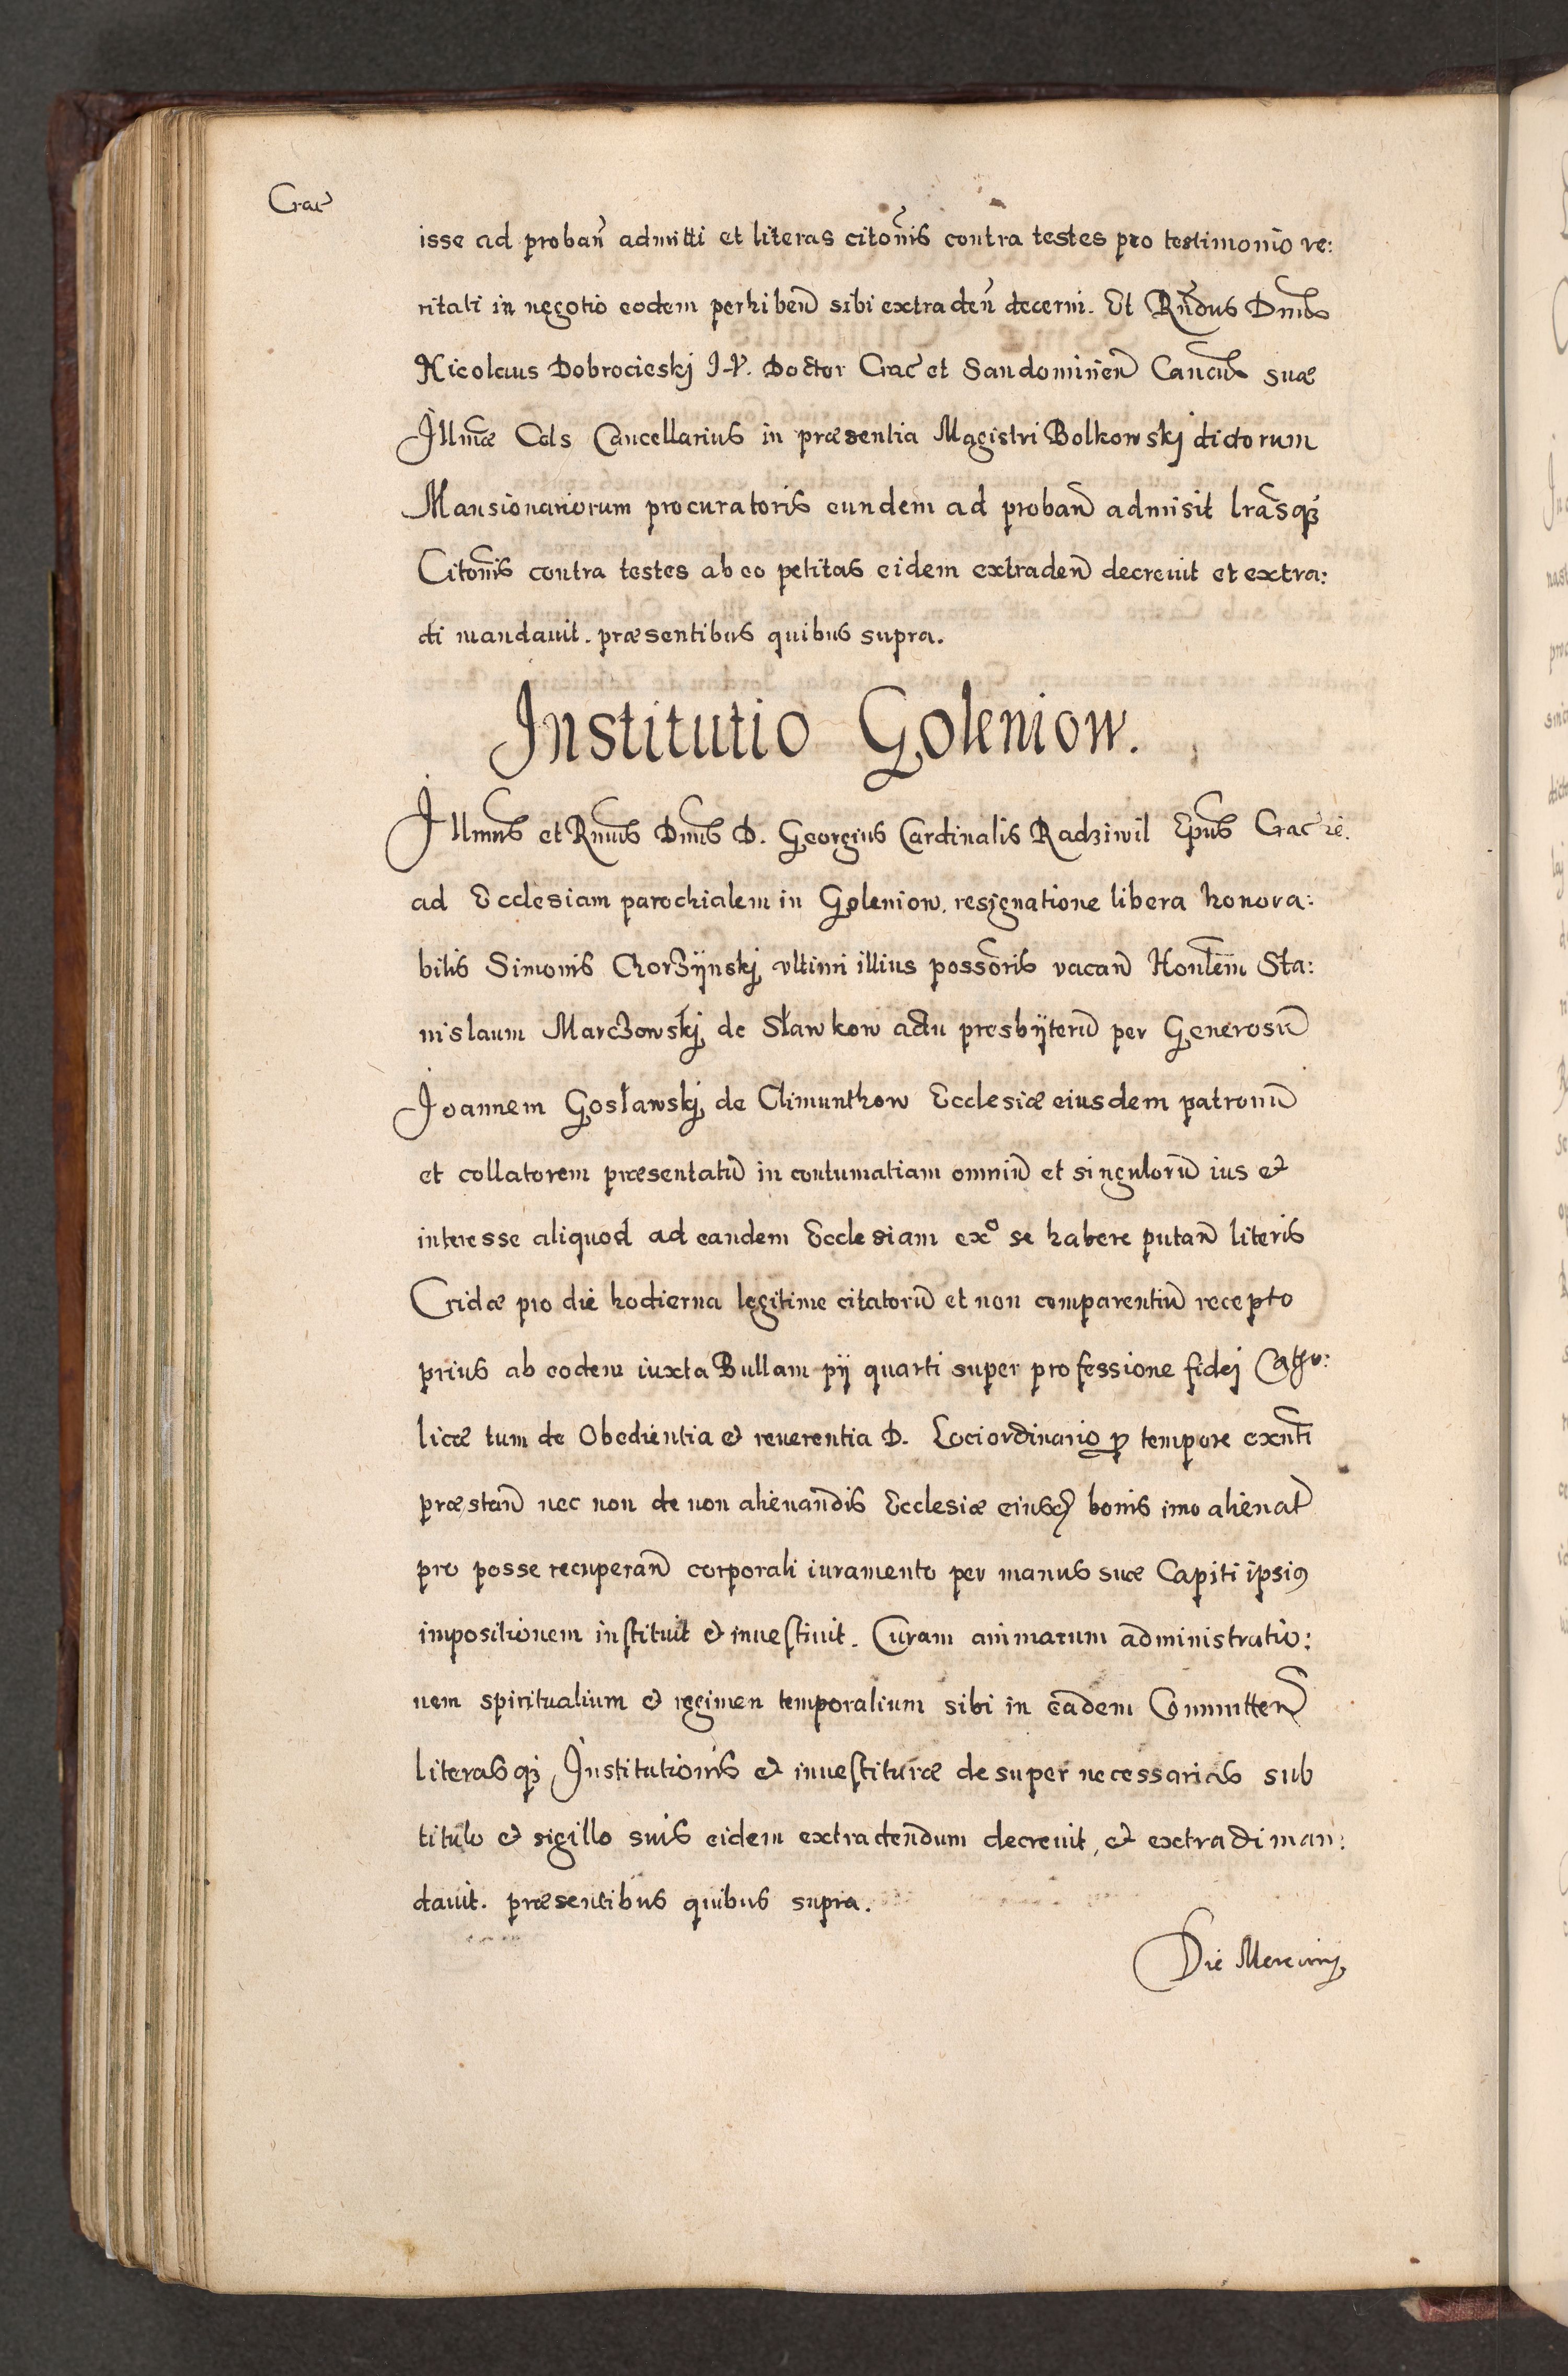 Crac̄
isse ad proban̄ admitti et literas citōnis contra testes pro testimonio ve:
ritati in negotio eodem perhiben̄ sibi extraden̄ decerni. Et Rn̄dus Dn̄us
Nicolaus Dobrocieskj I. V. Doctor Crac̄ et Sandomirien̄ Canc̄us suæ
Illmæ Cels Cancellarius in præsentia Magistri Bolkowskj dictorum
Mansionariorum procuratoris eundem ad proban̄ admisit lr̄asq3
Citōnis contra testes ab eo petitas eidem extraden̄ decrevit et extra:
di mandauit. præsentibus quibus supra.
Institutio Goleniow.
Illmūs et Rmūs Dn̄us D. Georgius Cardinalis Radziwil Ep̄us Crac̄ zc̄.
ad Ecclesiam parochialem in Goleniow. resignatione libera honora:
bilis Simonis Chorzÿnskj vltimi illius possōris vacan̄ Honlēm Sta:
nislaum Marczowskj de Sławkow actu presbÿterū per Generosū
Joannem Gosławskj de Climunthow Ecclesiæ eiusdem patronū
et collatorem præsentatū in contumatiam omniū et singulorū ius et
interesse aliquod ad eandem Ecclesiam exº se habere putan̄ literis
Cridæ pro die hodierna legitime citatorū et non comparentiū recepto
prius ab eodem iuxta Bullam pÿ quarti super professione fidej Catho:
licæ tum de Obedientia et reuerentia D. Lociordinario p tempore exn̄ti
præstan̄ nec non de non alienandis Ecclesiæ eiusd bonis imo alienat̄
pro posse recuperan̄ corporali iuramento per manus suæ Capiti ipsiꝰ
impositionem instituit et inuestiuit. Curam animarum administratio:
nem spiritualium et regimen temporalium sibi in eadem Committen̄
literasq3 Institutionis et inuestituræ desuper necessarias sub
titulo et sigillo suis eidem extradendum decreuit, et extradi man:
dauit. præsentibus quibus supra.
Die Mercurij